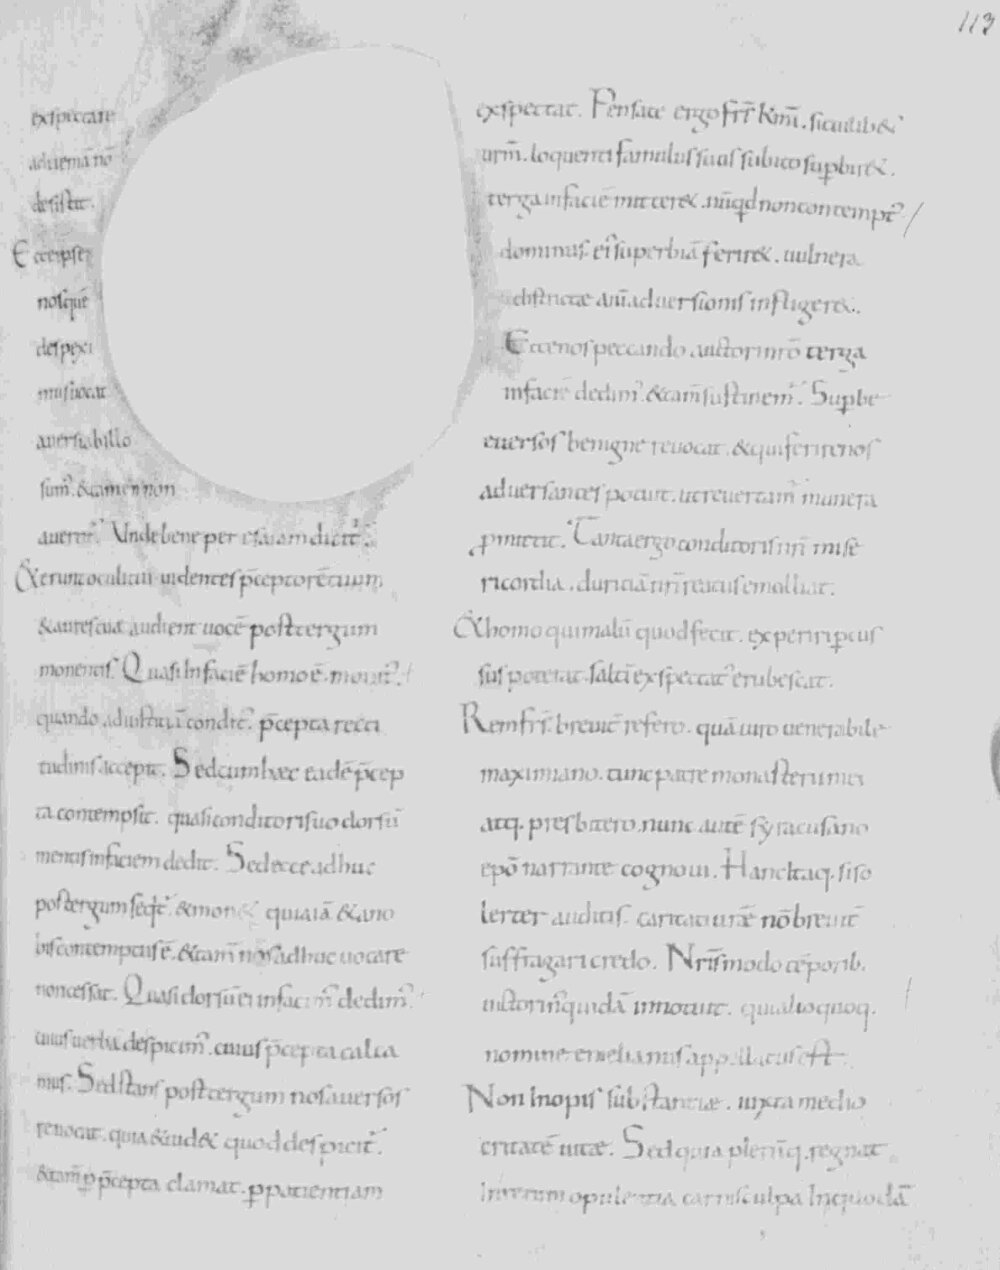 113
expectare
aduenia nō
desistit.
Ecce ipse
nosque
despexi
mus uocat
auersus illo
sum᷒. & tamen non
auertit᷒. Unde bene per esaiam dicit᷒.
& erunt oculi tui uidentes p̄ceptorē tuum
& aures tuæ audient uocē post tergum
monentis. Quasi in faciē homo ē monit᷒.
quando ad iustitiā condit᷒. p̄cepta recti
tudinis accepit. Sed cum hæc eadē p̄cep
ta contempsit. quasi conditori suo dorsū
mentis in faciem dedit. Sed ecce adhuc
post tergum seqt᷒. & mon& quia iā & ano
bis contemptus ē. & tam̄ nos adhuc uocare
non cessat. Quasi dorsū ei in faciem dedim᷒.
cuius uerba despicim᷒. cuius p̄cepta calca
mus. Sed stans post tergum nos auersos
reuocat. quia & uid& quod despicit᷒.
& tam̄ p p̄cepta clamat. p patientiam
exspectat. Pensate ergo fr̄s km̄i. si cuilib&
urm̄. loquenti famulus suus subito supbir&.
terga in faciē mitter&. nūqd non contempt᷒
dominus. ei superbiā ferir&. uulnera
districtæ anīaduersionis infliger&.
Ecce nos peccando auctori nrō terga
in faciē dedim᷒. & tam̄ sustinem᷒. Supbe
euersos benigne reuocat. & qui ferire nos
aduersantes potuit. ut reuertam᷒ munera
pmittit. Tanta ergo conditoris nr̄i mise
ricordia. duritiā nr̄i reatus emolliat.
& homo qui malū quod fecit. experiri pcus
sus poterat. saltī exspectat᷒ erubescat.
Rem fr̄s. breuit̄ refero. quā uiro uenerabile
maximiano. tunc patre monasterii mei
atq. presbitero. nunc autē syracusano
epō narrante cognoui. Hanc itaq. si so
lerter auditis. caritati uræ nō breuit̄
suffragari credo. Nr̄is modo tēporib.
uictorin᷒ quidā innotuit. qui alio quoq.
nomine emelianus appellatus est
Non inopis substantiæ. iuxta medio
critatē uitæ. Sed quia plerūq. regnat
in rerum opulentia carnis culpa. In quodā